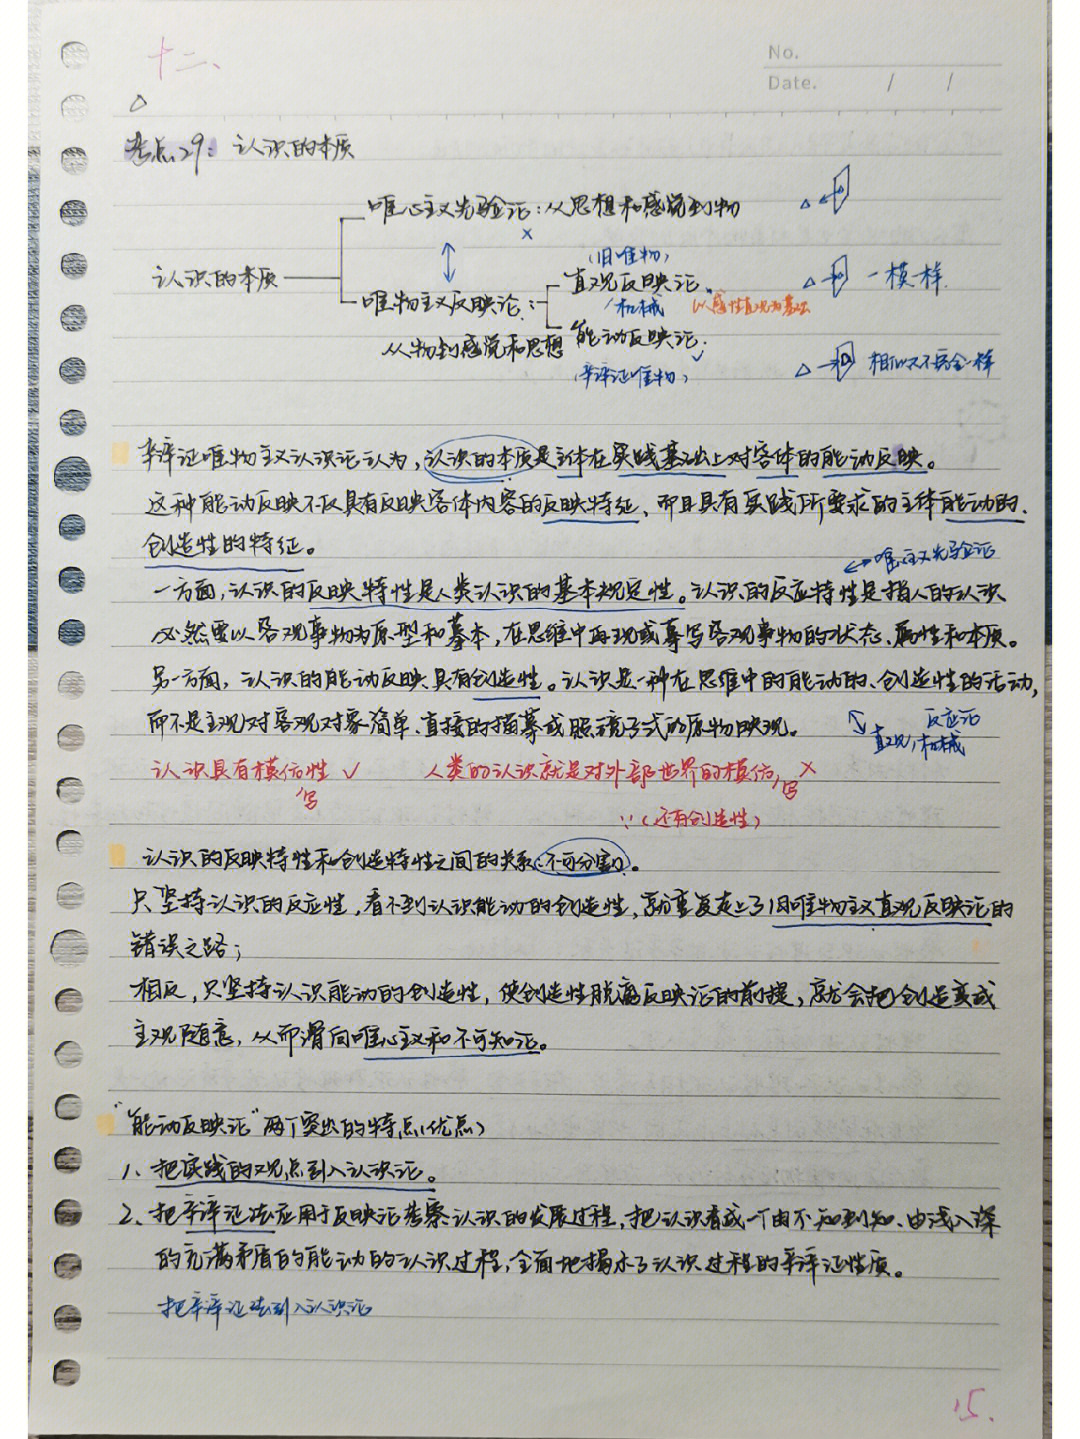 十二、
No.
Date. / /
考点29：认识的本质
唯心主义先验论：从思想和感觉到物
×
(旧唯物)
认识的本质
直观反映论。
一模一样
唯物主义反映论：
机械
以感性直观为基础
从物到感觉和思想
能动反映论：
(辛辩证唯物)
相似又不完全一样
辛辩证唯物主义认识论认为，认识的本质是主体在实践基础上对客体的能动反映。
这种能动反映不仅具有反映客体内容的反映特征、而且具有实践所要求的主体能动的、
创造性的特征。
唯心主义先验论
一方面，认识的反映特性是人类认识的基本规定性。认识的反应特性是指人的认识
必然要以客观事物为原型和摹本，在思维中再现或摹写客观事物的状态、属性和本质。
另一方面，认识的能动反映具有创造性。认识是一种在思维中的能动的、创造性的活动，
而不是主观对客观对象简单、直接的描摹或照镜子式的原物映现。
反应论
直观，机械
认识具有模仿性 ✓ 人类的认识就是对外部世界的模仿 ×
写 写
∵(还有创造性)
认识的反映特性和创造特性之间的关系：不可分割。
只坚持认识的反应性，看不到认识能动的创造性，就重复走上了旧唯物主义直观反映论的
错误之路；
相反，只坚持认识能动的创造性，使创造性脱离反映论的前提，就会把创造变成
主观随意，从而滑向唯心主义和不可知论。
“能动反映论”两个突出的特点(优点)
1、把实践的观点引入认识论。
2、把辛辩证法应用于反映论考察认识的发展过程，把认识看成一个由不知到知、由浅入深
的充满矛盾的能动的认识过程，全面地揭示了认识过程的辛辩证性质。
把辛辩证法引入认识论
15.